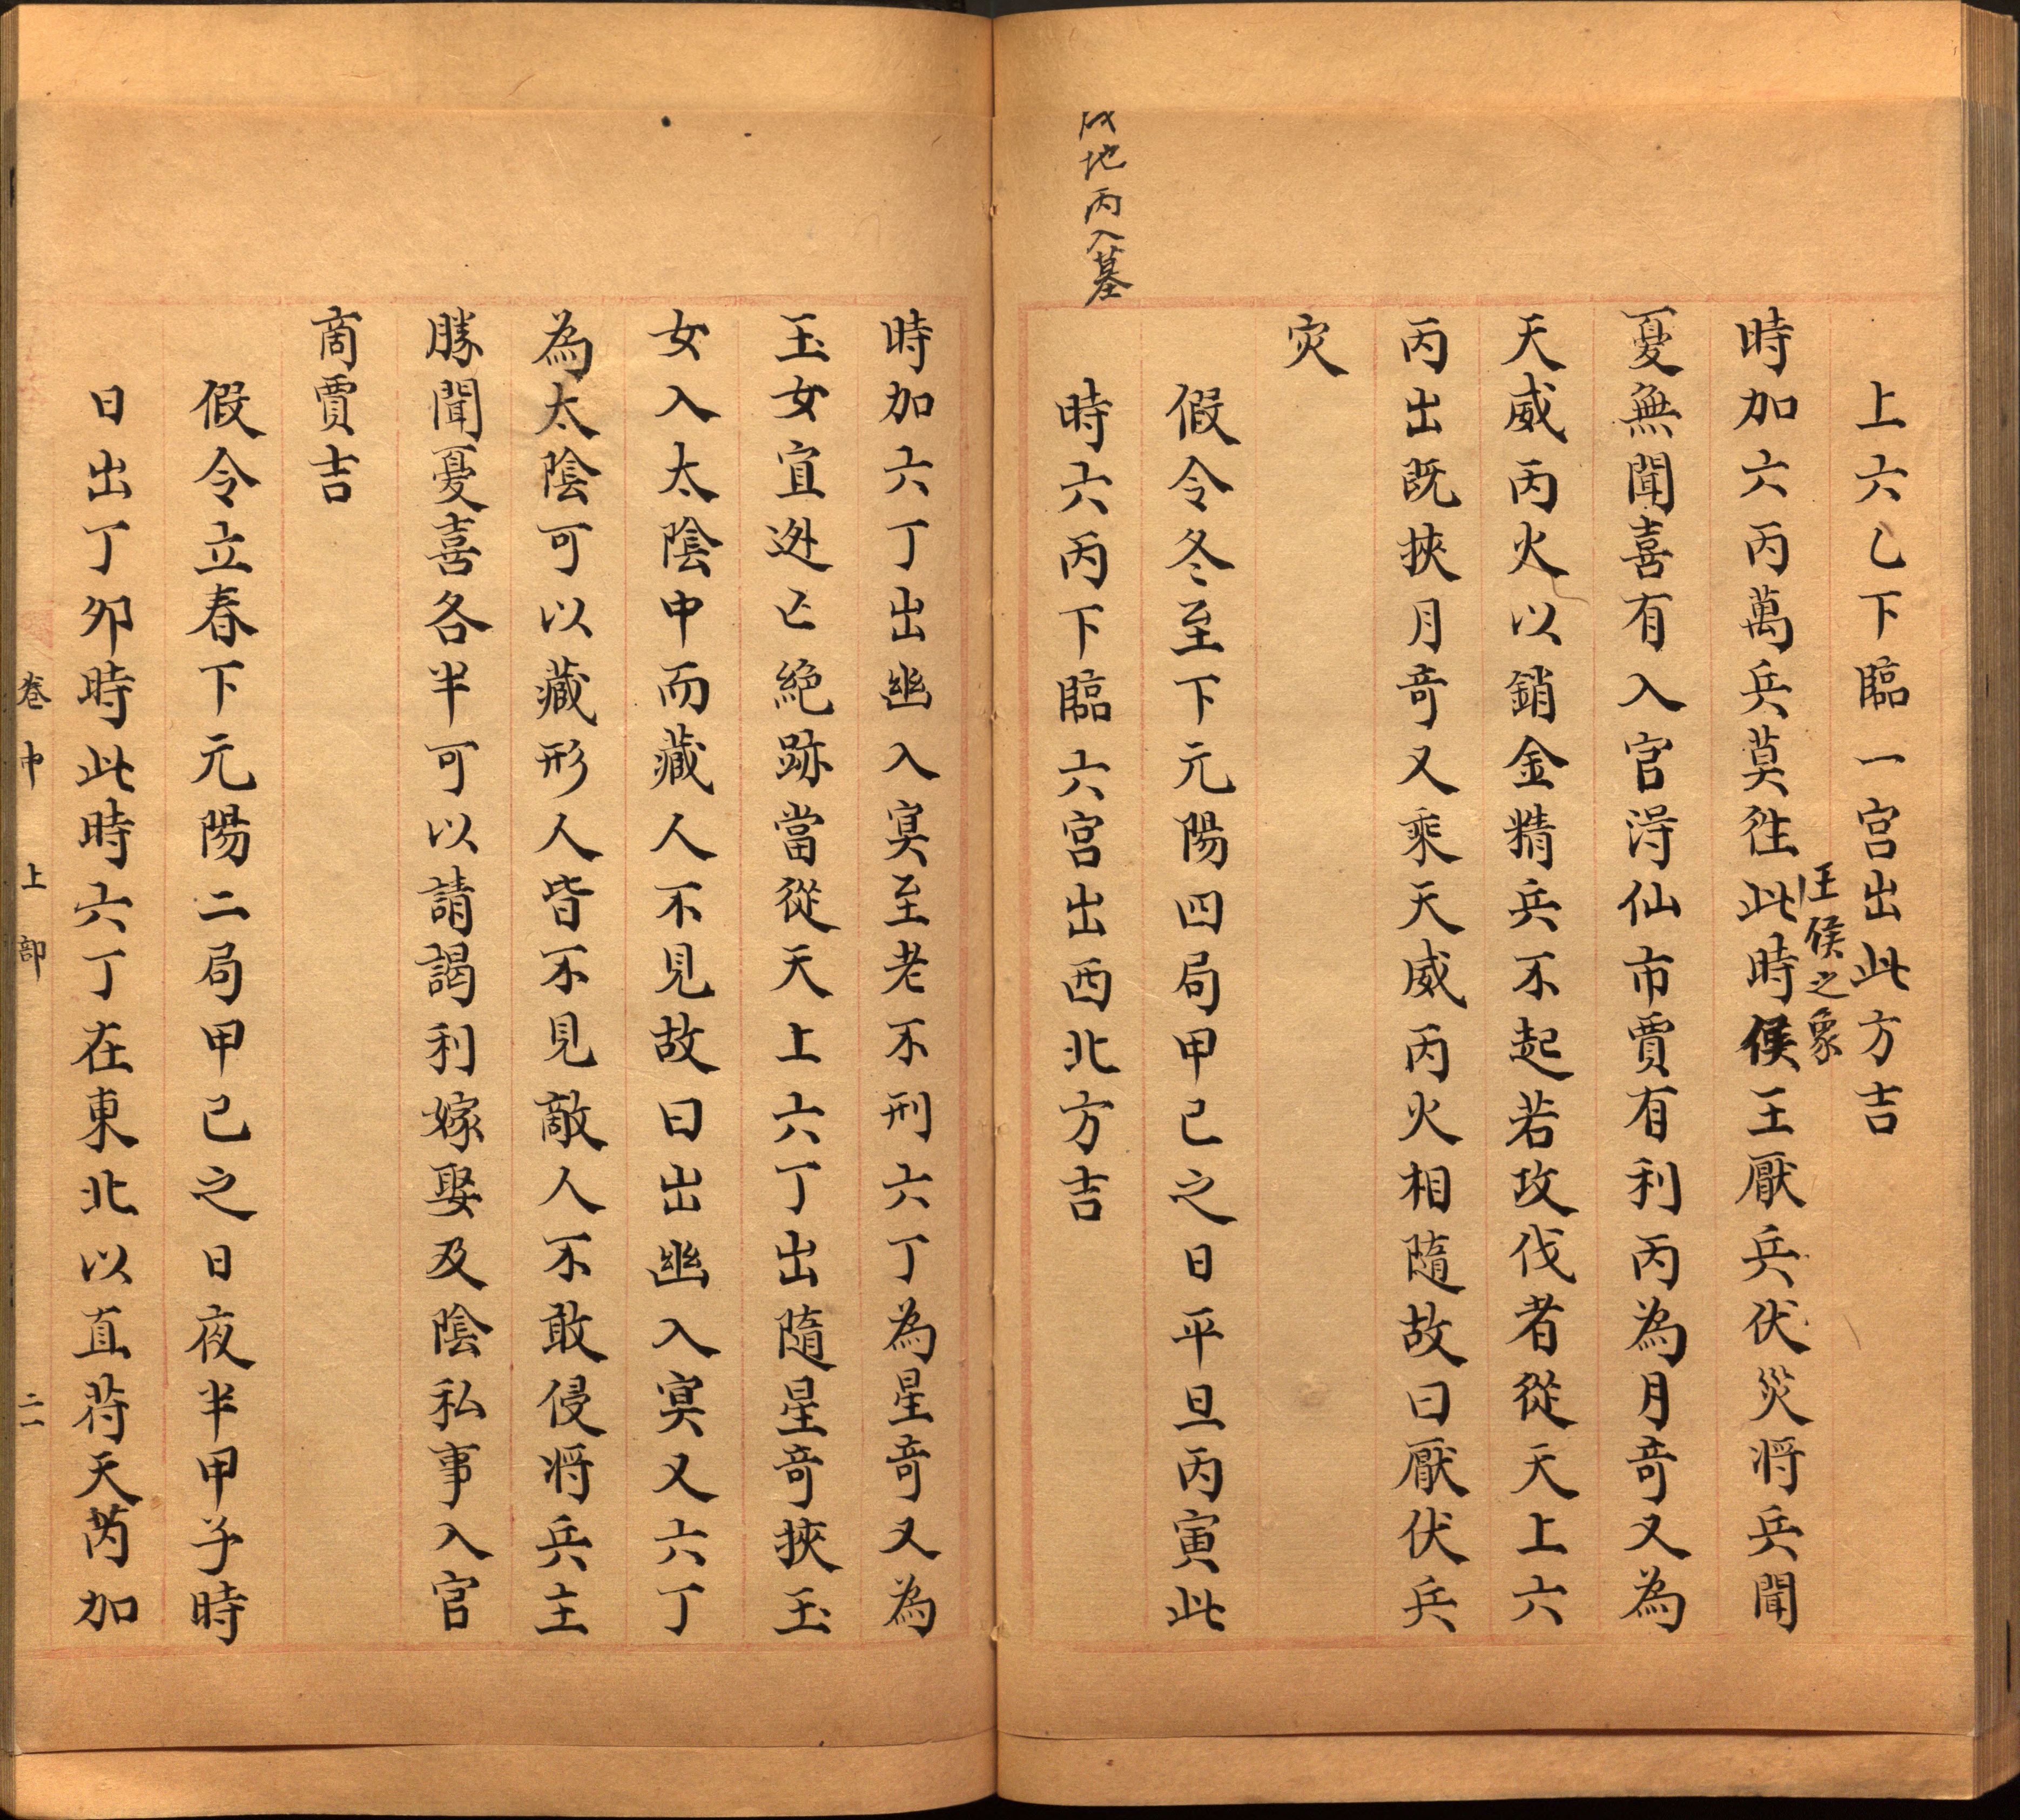 上六乙下臨一宮出此方吉
王侯之象
時加六丙萬兵莫徃此時侯王厭兵伏災将兵聞
憂無聞喜有入官淂仙市賈有利丙為月竒又為
天威丙火以銷金精兵不起若攻伐者從天上六
丙出既挾月竒又乘天威丙火相隨故曰厭伏兵
灾
假令冬至下元陽四局甲己之日平旦丙寅此
時六丙下臨六宮出西北方吉
戌地丙入墓
時加六丁出幽入冥至老不刑六丁為星竒又為
玉女宜迯亡絶跡當從天上六丁出隨星竒挾玉
女入太陰中而藏人不見故曰出幽入冥又六丁
為太陰可以藏形人皆不見敵人不敢侵将兵主
勝聞憂喜各半可以請謁利嫁娶及陰私事入官
商賈吉
假令立春下元陽二局甲己之日夜半甲子時
日出丁夘時此時六丁在東北以直苻天芮加
卷中 上部 二一